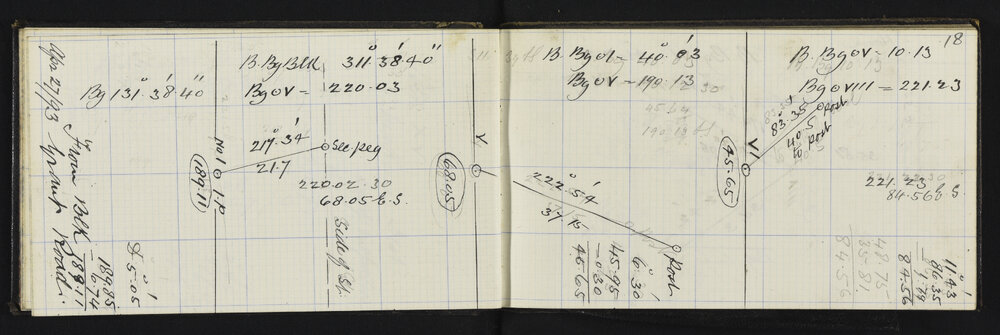 Apr 27/93 Grant Road.
to
From Blk 189.11
Bg 131° 38' 40"
D. 5° 05'
189.85
- 0.74
189.11
B.Bg Blk 311° 38' 40"
Bg OV = 220.03
No 1
I.P
189.11
217° 34'
21.7
See peg
220.02.30
68.05 E.S.
Side of St.
B. Bg OI = 40° 03'
Bg OV = 190.13
V
68.05
222° 54'
37.15
Post
6° 30'
45.95
- 0.30
45.65
18
B. Bg OV = 10.13
Bg OVIII = 221.23
VI
45.65
83.35
40.5
to post
Post
221.23
84.56 E.S.
11° 43'
86.35
1.79
84.56
48.75
35.81
84.56